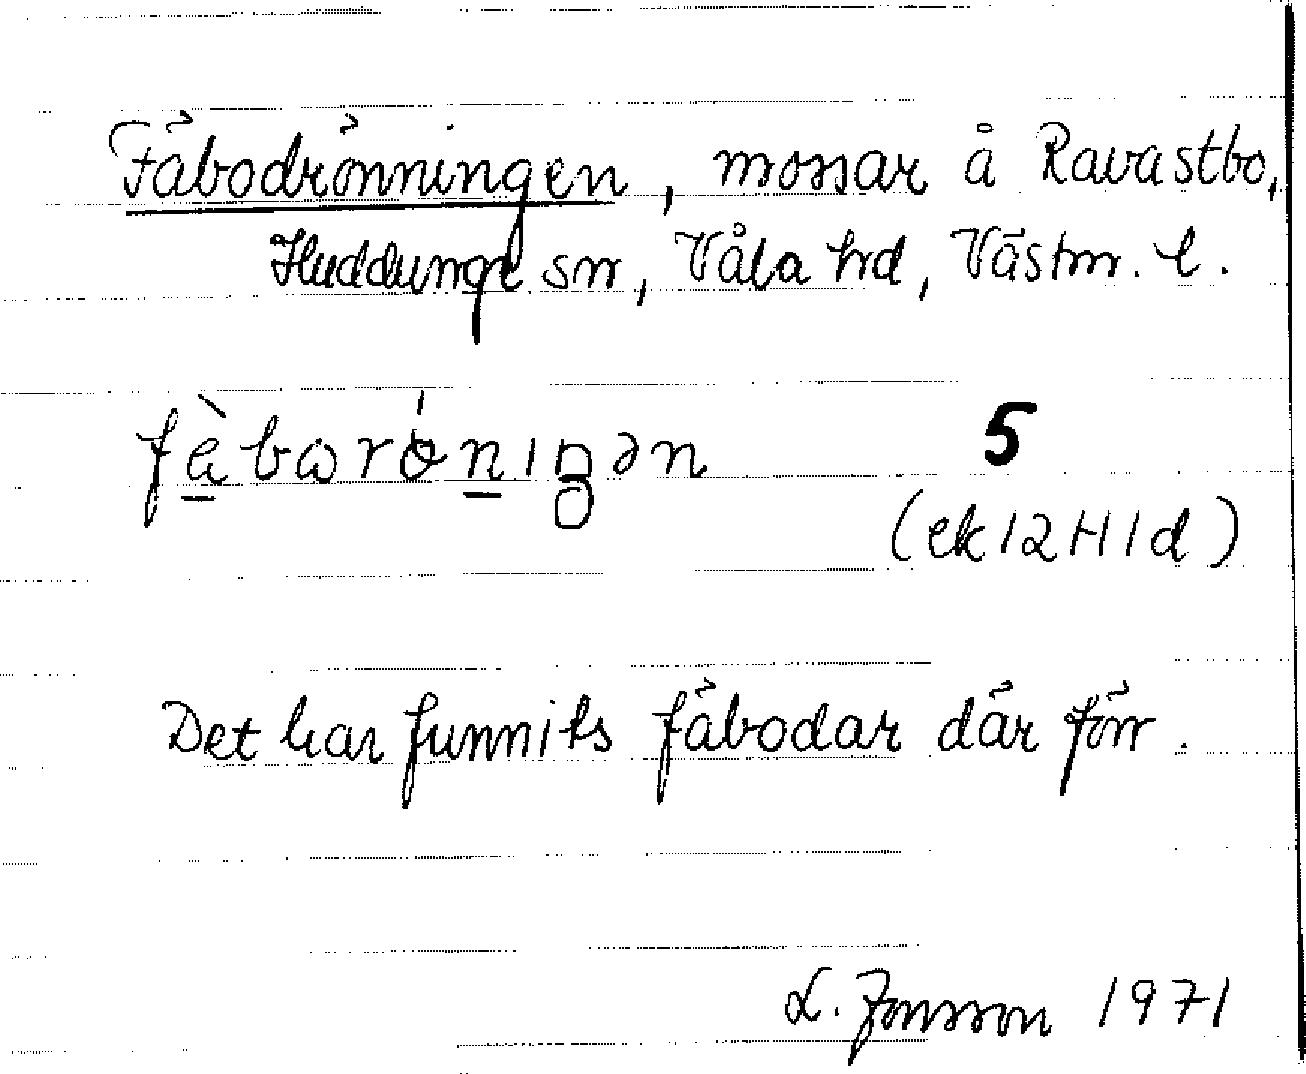 Fäbodrönningen, mossar å Ravastbo,
Huddunge sn, Våla hd, Västm. l.
fàbɷrónıŋən 5
(ek 12H1d)
Det har funnits fäbodar där förr.
L. Jonsson 1971